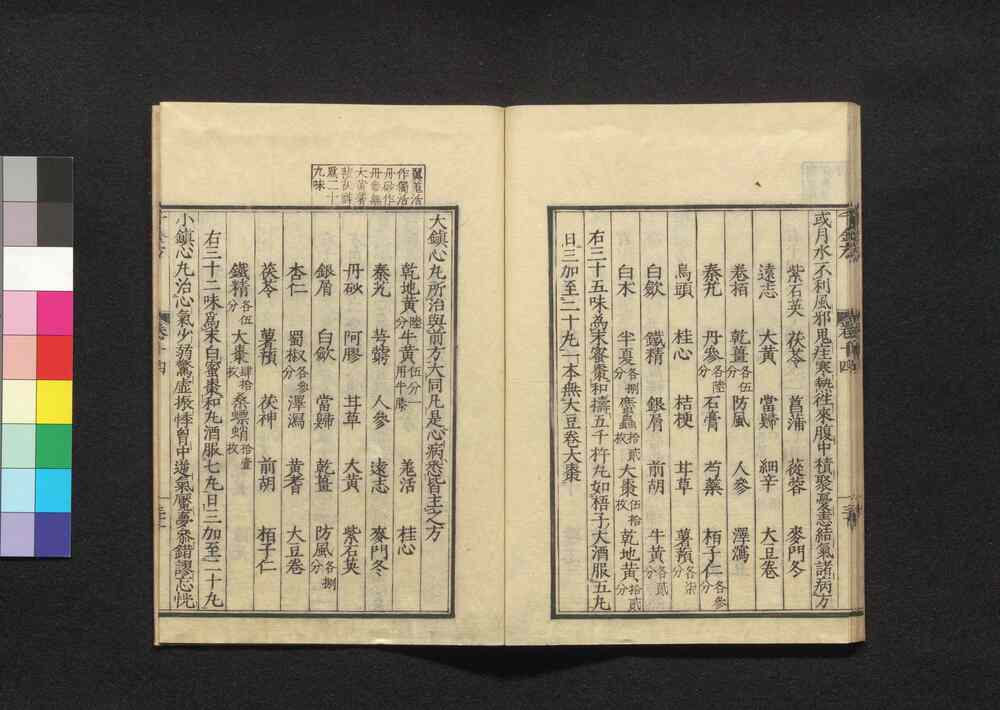 或月水不利風邪鬼疰寒熱往來腹中積聚憂恚結氣諸病方
紫石英 茯苓 菖蒲 蓯蓉 麥門冬
遠志 大黃 當歸 細辛 大豆卷
卷栢 乾薑各伍分 防風 人參 澤瀉
秦艽 丹參各陸分 石膏 芍藥 栢子仁各參分
烏頭 桂心 桔梗 甘草 薯蕷各柒分
白歛 鐵精 銀屑 前胡 牛黃各貳分
白朮 半夏各捌分 䗪蟲拾貳枚 大棗伍拾枚 乾地黃拾貳分
右三十五味爲末蜜棗和擣五千杵丸如梧子大酒服五丸
日三加至二十丸一本無大豆卷大棗
千金方
卷十四
大鎮心丸所治與前方大同凡是心病悉皆主之方
乾地黃陸分 牛黃伍分一用牛膝 羗活 桂心
秦艽 芎藭 人參 遠志 麥門冬
丹砂 阿膠 甘草 大黃 紫石英
銀屑 白歛 當歸 乾薑 防風各捌分
杏仁 蜀椒各參分 澤瀉 黃耆 大豆卷
茯苓 薯蕷 茯神 前胡 栢子仁
鐵精各伍分 大棗肆拾枚 桑螵蛸拾壹枚
右三十二味爲末白蜜棗和丸酒服七丸日三加至二十丸
小鎮心丸治心氣少弱驚虛振悸胷中逆氣魘夢參錯謬忘恍
作獨活
丹砂作
丹參無
大黃
二十
九味